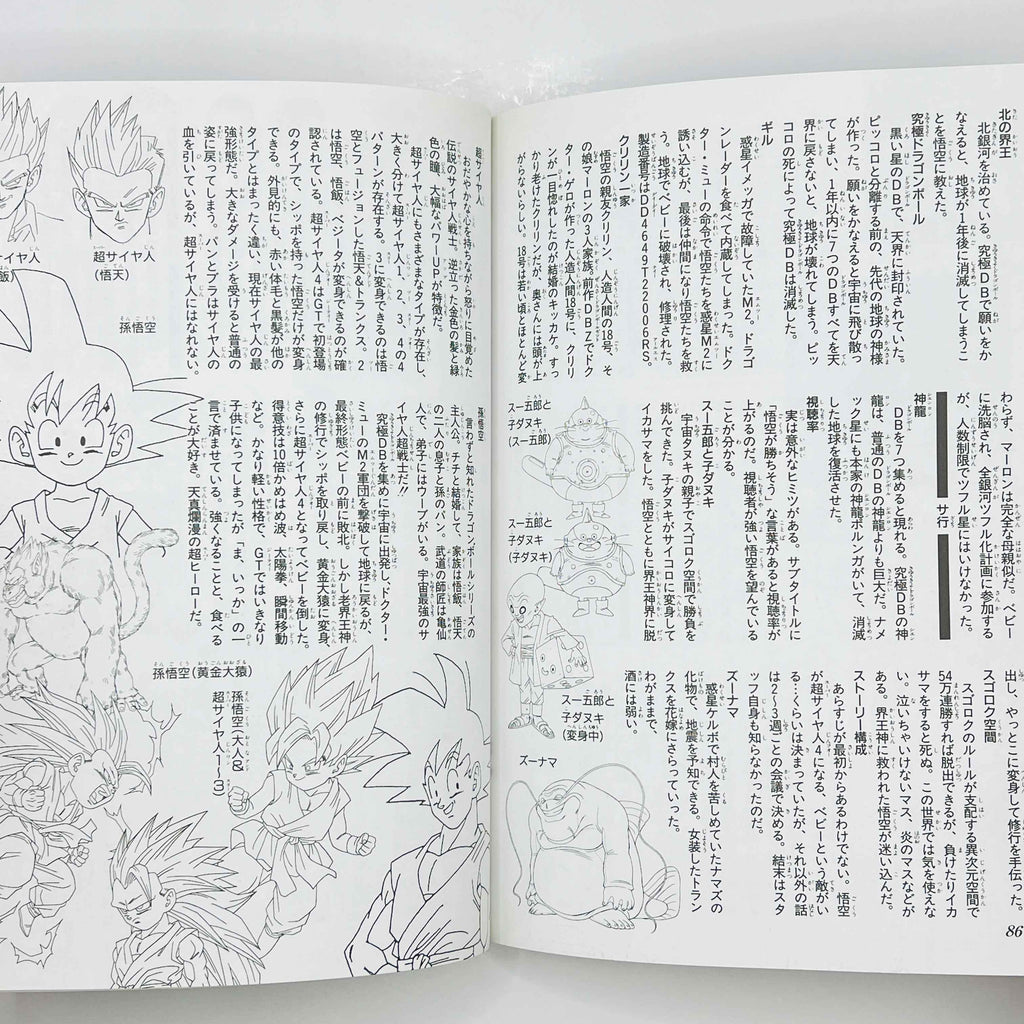 北の界王
北銀河を治めている。究極DBで願いをか
なえると、地球が1年後に消滅してしまうこ
とを悟空に教えた。
究極ドラゴンボール
黒い星のDBで、天界に封印されていた。
ピッコロと分離する前の、先代の地球の神様
が作った。願いをかなえると宇宙に飛び散っ
てしまい、1年以内に7つのDBすべてを天
界に戻さないと、地球が壊れてしまう。ピッ
コロの死によって究極DBは消滅した。
ギル
惑星イメッガで故障していたM2。ドラゴ
ンレーダーを食べて内蔵してしまった。ドク
ター・ミューの命令で悟空たちを惑星M2に
誘い込むが、最後は仲間になり悟空たちを救
う。地球でベビーに破壊され、修理された。
製造番号はDD4649T22006RS。
クリリン一家
悟空の親友クリリン、人造人間の18号、そ
の娘のマーロンの3人家族。前作DBZでドク
ター・ゲロが作った人造人間18号に、クリリ
ンが一目惚れしたのが結婚のキッカケ。すっ
かり老けたクリリンだが、奥さんには頭が上
がらないらしい。18号は若い頃とほとんど変
わらず、マーロンは完全な母親似だ。ベビー
に洗脳され、全銀河ツフル化計画に参加する
が、人数制限でツフル星にはいけなかった。
サ行
神龍
DBを7つ集めると現れる。究極DBの神
龍は、普通のDBの神龍よりも巨大だ。ナメ
ック星にも本家の神龍ポルンガがいて、消滅
した地球を復活させた。
視聴率
実は意外なヒミツがある。サブタイトルに
「悟空が勝ちそう」な言葉があると視聴率が
上がるのだ。視聴者が強い悟空を望んでいる
ことが分かる。
スー五郎と子ダヌキ
宇宙タヌキの親子でスゴロク空間で勝負を
挑んできた。子ダヌキがサイコロに変身して
イカサマをした。悟空とともに界王神界に脱
スー五郎と
子ダヌキ
(スー五郎)
スー五郎と
子ダヌキ
(子ダヌキ)
出し、やっとこに変身して修行を手伝った。
スゴロク空間
スゴロクのルールが支配する異次元空間で
54万連勝すれば脱出できるが、負けたりイカ
サマをすると死ぬ。この世界では気を使えな
い。泣いちゃいけないマス、炎のマスなどが
ある。界王神に救われた悟空が迷い込んだ。
ストーリー構成
あらすじが最初からあるわけでない。悟空
が超サイヤ人4になる、ベビーという敵がい
る…くらいは決まっていたが、それ以外の話
は2~3週ごとの会議で決める。結末はスタ
ッフ自身も知らなかったのだ。
ズーナマ
惑星ケルボで村人を苦しめていたナマズの
化物で、地震を予知できる。女装したトラン
クスを花嫁にさらっていった。
わがままで、
酒には弱い。
スー五郎と
子ダヌキ
(変身中)
ズーナマ
86
超サイヤ人
おだやかな心を持ちながら怒りに目覚めた
伝説のサイヤ人戦士。逆立った金色の髪と緑
色の瞳、大幅なパワーUPが特徴だ。
超サイヤ人にもさまざまなタイプが存在し、
大きく分けて超サイヤ人1、2、3、4の4
パターンが存在する。3に変身できるのは悟
空とフュージョンした悟天&トランクス。2
は悟空、悟飯、ベジータが変身できるのが確
認されている。超サイヤ人4はGTで初登場
のタイプで、シッポを持った悟空だけが変身
できる。外見的にも、赤い体毛と黒髪が他の
タイプとはまったく違い、現在サイヤ人の最
強形態だ。大きなダメージを受けると普通の
姿に戻ってしまう。パンとブラはサイヤ人の
血を引いているが、超サイヤ人にはなれない。
超サイヤ人
(悟天)
サイヤ人
飯)
孫悟空
言わずと知れたドラゴンボールシリーズの
主人公。チチと結婚して、家族は悟飯、悟天
の二人の息子と孫のパン。武道の師匠は亀仙
人で、弟子にはウーブがいる。宇宙最強のサ
イヤ人超戦士だ!!
究極DBを集めに宇宙に出発し、ドクター・
ミューのM2軍団を撃破して地球に戻るが、
最終形態ベビーの前に敗北。しかし老界王神
の修行でシッポを取り戻し、黄金大猿に変身、
さらに超サイヤ人4となってベビーを倒した。
得意技は10倍かめはめ波、太陽拳、瞬間移動
など。かなり軽い性格で、GTではいきなり
子供になってしまったが「ま、いっか」の一
言で済ませている。強くなることと、食べる
ことが大好き。天真爛漫の超ヒーローだ。
孫悟空
孫悟空(黄金大猿)
孫悟空(大人&
超サイヤ人1~3)